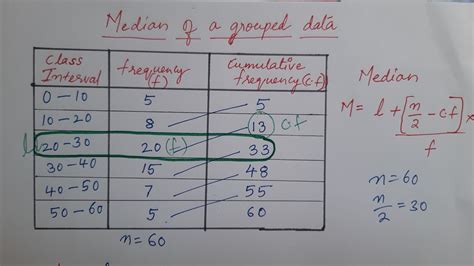 Median of a grouped data
Class Interval frequency (f) Cumulative frequency (cf)
0 - 10 5 5
10 - 20 8 13 cf
l 20 - 30 20 (f) 33
30 - 40 15 48
40 - 50 7 55
50 - 60 5 60
n = 60
Median
M = l + [n/2 - cf] ×
f
n = 60
n/2 = 30